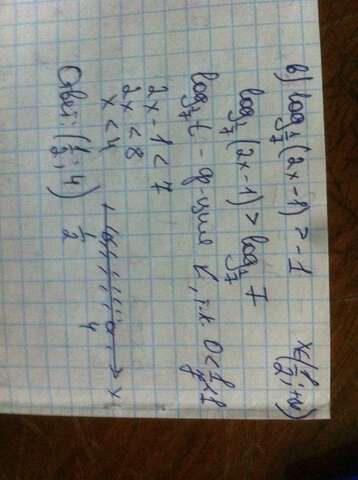 в) log_{1/7}(2x-1) > -1   x∈(1/2; +∞)
log_{1/7}(2x-1) > log_{1/7} 7
log_{1/7} t - ф-ция ↓, т.к. 0<1/7<1
2x-1 < 7
2x < 8
x < 4
1/2   4   x
Ответ: (1/2; 4)